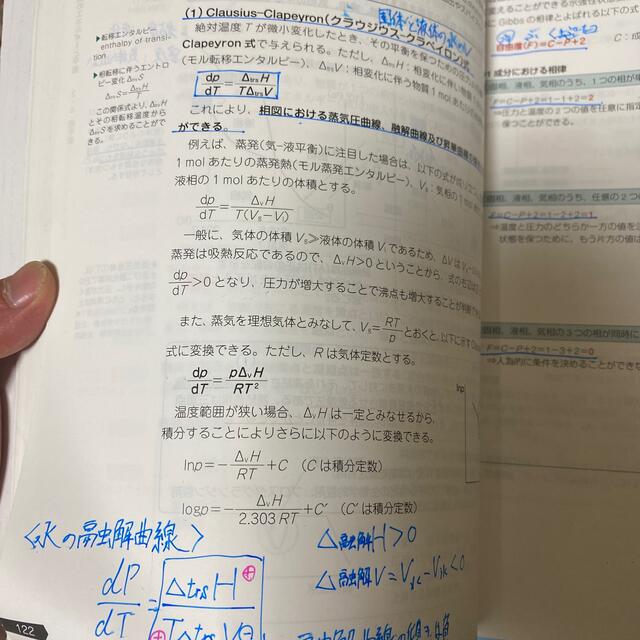 (1) Clausius-Clapeyron(クラウジウス-クラペイロン)式
絶対温度Tが微小変化したとき、その平衡を保つための圧力
Clapeyron 式で与えられる。ただし、ΔtrsH：相変化に伴う物質
(モル転移エンタルピー)、ΔtrsV：相変化に伴う物質1molあたりの
dp/dT=ΔtrsH/TΔtrsV
これにより、相図における蒸気圧曲線、融解曲線及び昇華曲線の
ができる。
例えば、蒸発(気-液平衡)に注目した場合は、以下の式が
1molあたりの蒸発熱(モル蒸発エンタルピー)、Vg：気相の1mol
液相の1molあたりの体積とする。
dp/dT=ΔvH/T(Vg−Vl)
一般に、気体の体積Vg≫液体の体積Vlであるため、ΔVは
蒸発は吸熱反応であるので、ΔvH>0ということから、式の右辺は
dp/dT>0となり、圧力が増大することで沸点も増大することが
また、蒸気を理想気体とみなして、Vg=RT/pとおくと、以下に示す
式に変換できる。ただし、Rは気体定数とする。
dp/dT=pΔvH/RT²
温度範囲が狭い場合、ΔvHは一定とみなせるから、
積分することによりさらに以下のように変換できる。
lnp=−ΔvH/RT+C (Cは積分定数)
logp=−ΔvH/2.303RT+C′ (C′は積分定数)
<氷の融解曲線>
dP/dT=ΔtrsH⊕
Δ融解H>0
Δ融解V=V水−V氷<0
122
▶転移エンタルピー
enthalpy of transi-
tion
▶相転移に伴うエントロ
ピー変化ΔtrsS
ΔtrsS=ΔtrsH/T
この関係式より、ΔtrsH
とその相転移温度から
ΔtrsSを求めることがで
きる。
変えることができる示強性状態
にGibbsの相律とよばれる以下の式
自由度(F)=C−P+2
C：成
1成分における相律
気相のうち、1つの相が
F=C−P+2=1−1+2=2
⇒圧力と温度の2つの値を任意に指
保つことができる。
固相、液相、気相のうち、任意の2つ
F=C−P+2=1−2+2=1
⇒温度と圧力のどちらか一方の値を
状態を保つために、もう片方の値は
固相、液相、気相の3つの相が同時に
F=C−P+2=1−3+2=0
⇒人為的に条件を決めることができな
lnp